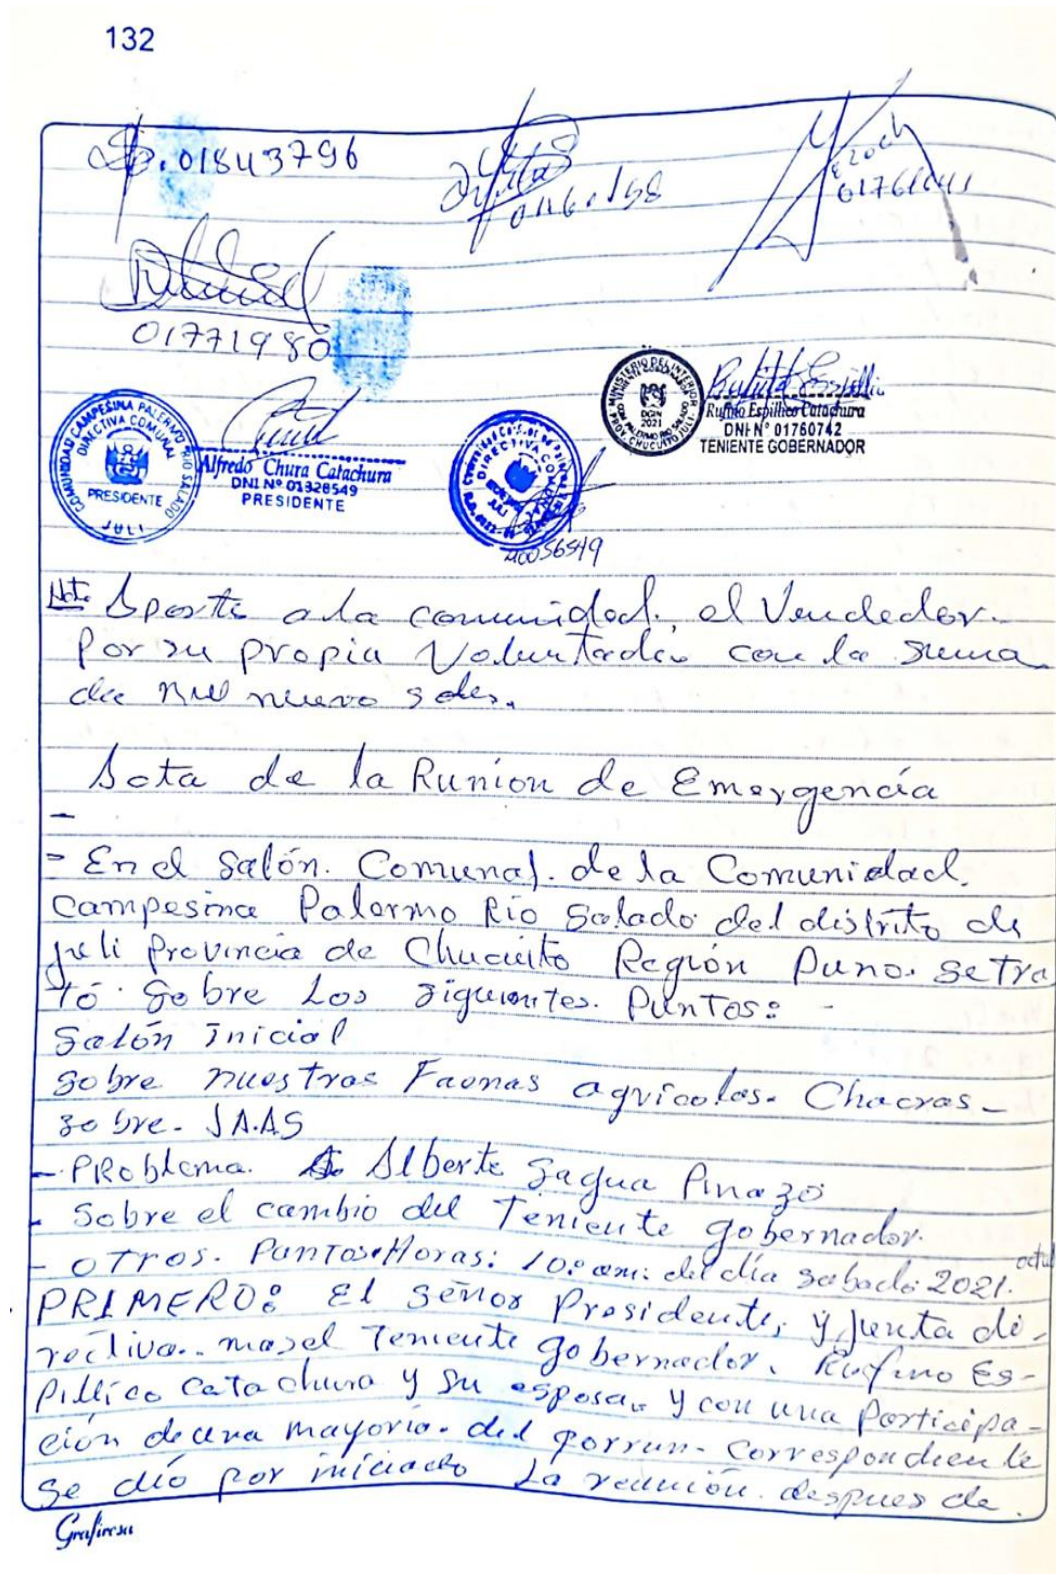 132
01843796
01771980
COMUNIDAD CAMPESINA PALERMO RIO SALADO
DIRECTIVA COMUNAL
PRESIDENTE
JULI
Alfredo Chura Catachura
DNI Nº 01328549
PRESIDENTE
DIRECTIVA COMUNAL
JULI
40056549
MINISTERIO DEL INTERIOR
DGIN
2021
Rufino Espillico Catachura
DNI Nº 01760742
TENIENTE GOBERNADOR
Aporte a la comunidad, el Vendedor.
Por su propia Voluntad con la suma
de mil nuevo soles.
Acta de la Runion de Emergencia
-
- En el Salón. Comunal. de la Comunidad.
Campesina Palermo Río Salado del distrito de
Juli Provincia de Chucuito Región Puno. se tra
tó. Sobre Los siguientes. Puntos: -
Salón Inicial
Sobre nuestras Faenas agrícolas. Chacras-
sobre- JA.AS
- PRoblema. Alberto Sagua Pinazo
- Sobre el cambio del Teniente gobernador.
- OTros. Puntos Horas: 10: am: del día sabado 2021.
PRIMERO: El señor Presidente, y junta di-
rectiva.. mas el Teniente gobernador. Rufino Es-
Pillico Catachura y su esposa. y con una Participa-
ción de una mayoría. del qorrun- correspondiente
se dió por iniciado La reunión. despues de.
Grafirosa